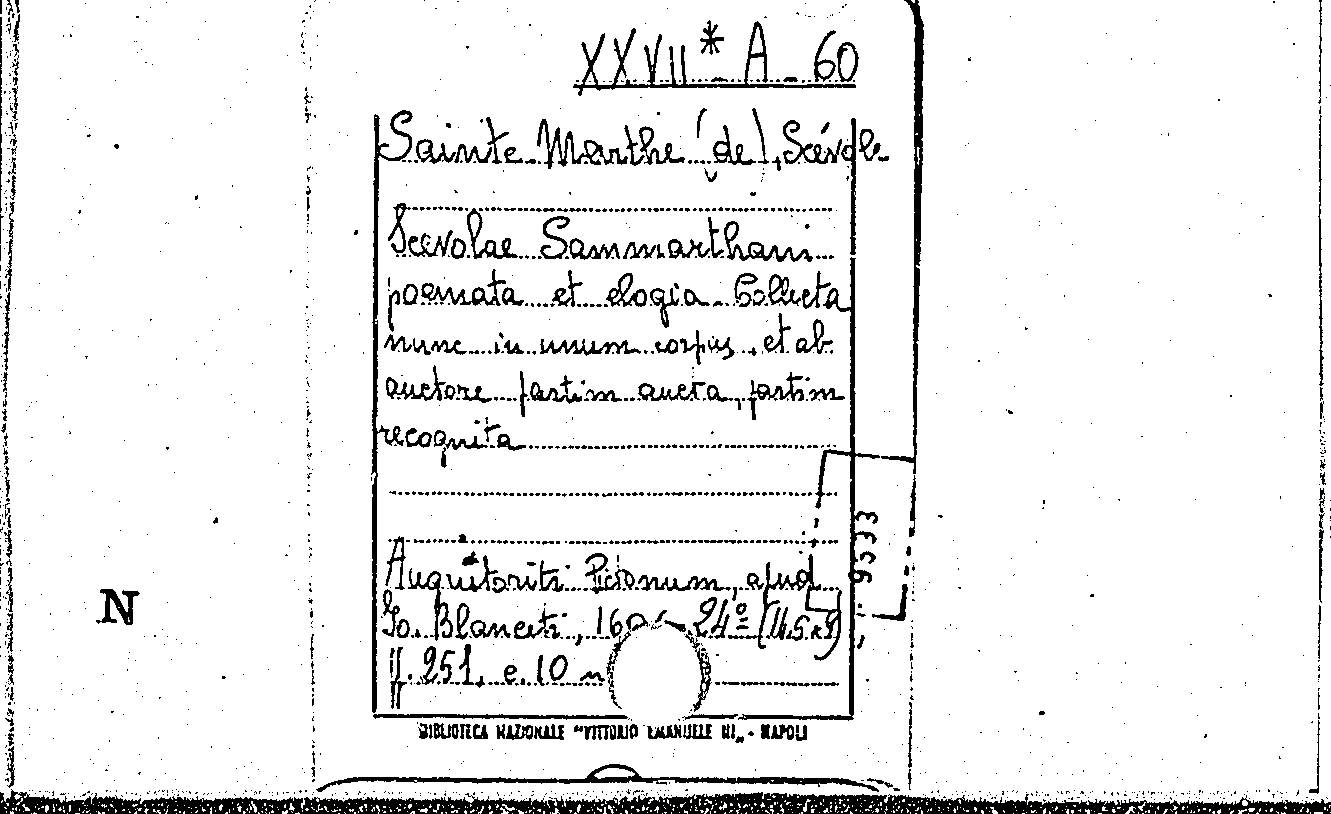 XXVII * A - 60
Sainte-Marthe (de), Scévole
Scevolae Sammarthani
poemata et elogia. Collecta
nunc in unum corpus, et ab
auctore partim aucta, partim
recognita
9533
Augustoriti Pictonum, apud
Io. Blanceti, 160 - 24º (14,5x9)
pp. 251. e. 10
N
BIBLIOTECA NAZIONALE "VITTORIO EMANUELE III" - NAPOLI